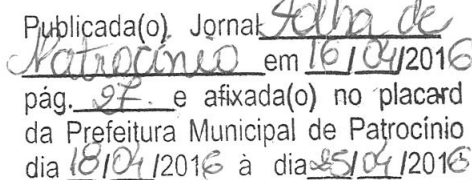 Publicada(o) Jornal Folha de
Patrocínio em 16/04/2016
pág. 27. e afixada(o) no placard
da Prefeitura Municipal de Patrocínio
dia 18/04/2016 à dia 25/04/2016